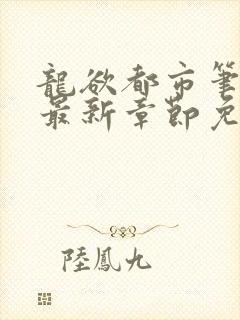 龍欲都市筆
最新章節免
陸鳳九